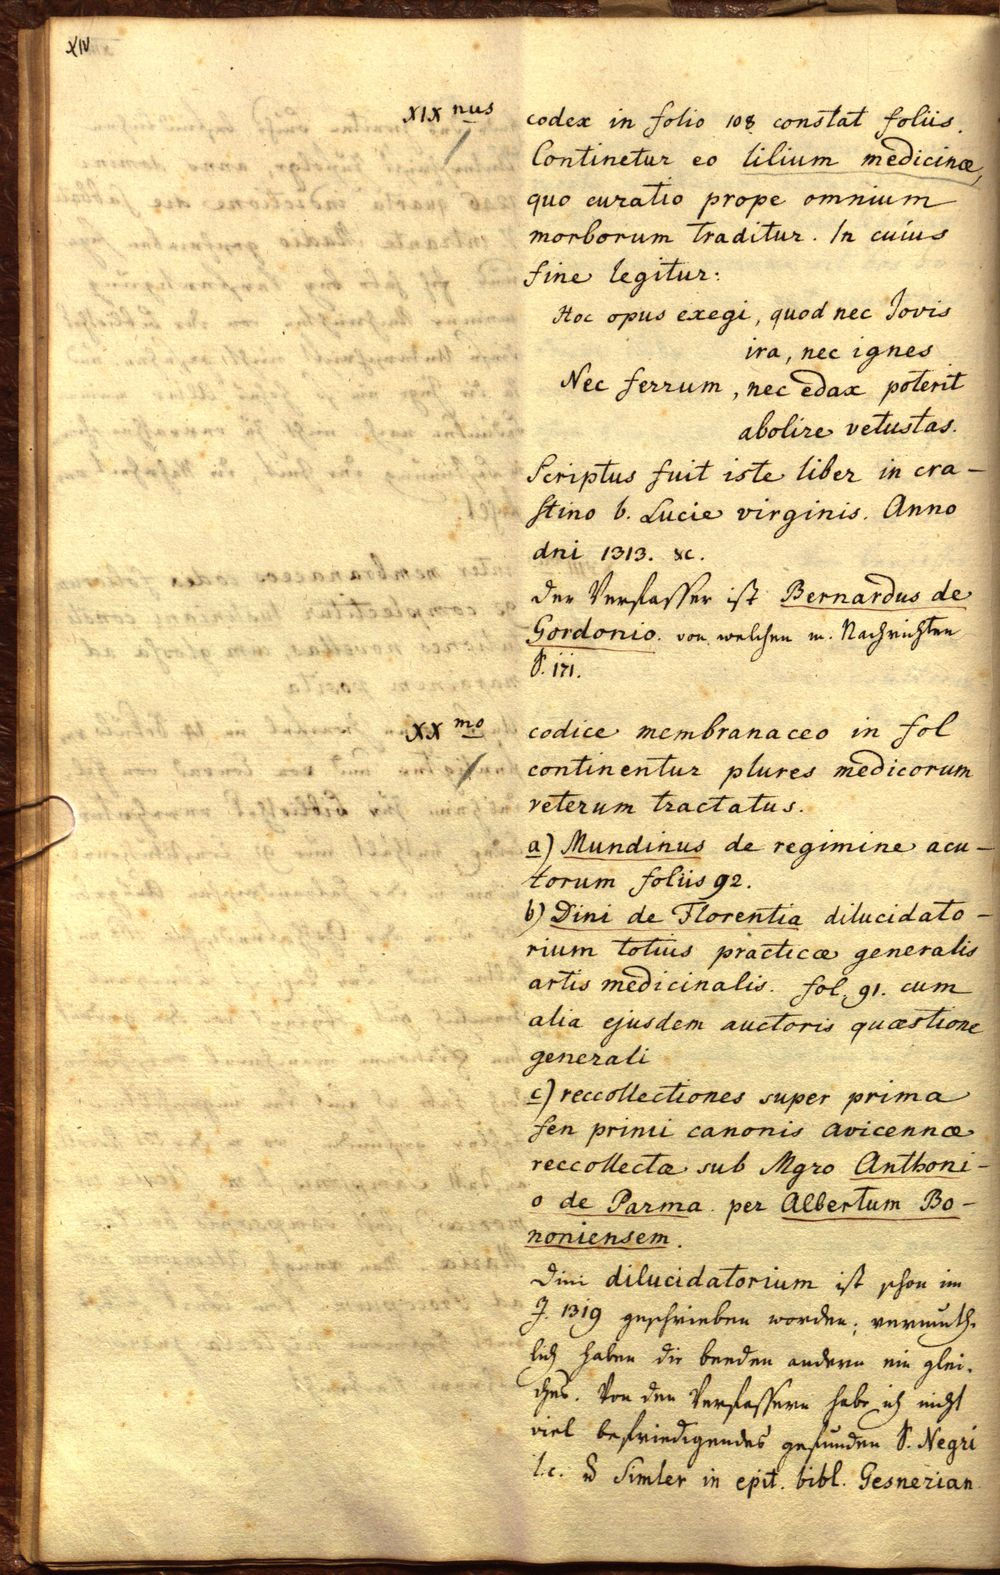 XIV
XIX nus codex in folio 108 constat foliis.
Continetur eo lilium medicinæ,
quo curatio prope omnium
morborum traditur. In cuius
fine legitur:
Hoc opus exegi, quod nec Jovis
ira, nec ignes
Nec ferrum, nec edax poterit
abolire vetustas.
Scriptus fuit iste liber in cra-
stino b. Lucie virginis. Anno
dni 1313. &c.
der Verfasser ist Bernardus de
Gordonio. von welchen m. Nachrichten
S. 171.
XX mo codice membranaceo in fol
continentur plures medicorum
veterum tractatus.
a) Mundinus de regimine acu-
torum foliis 92.
b) Dini de Florentia dilucidato-
rium totius practicæ generalis
artis medicinalis. fol. 91. cum
alia ejusdem auctoris quæstione
generali
c) reccollectiones super prima
fen primi canonis avicennæ
reccollecta sub Mgro Anthoni-
o de Parma per Albertum Bo-
noniensem.
Dini dilucidatorium ist schon im
J. 1319 geschrieben worden; vermuth-
lich haben die beeden andern ein glei-
ches. Von den Verfassern habe ich nicht
viel befriedigendes gefunden S. Negri
l.c. Simler in epit. bibl. Gesnerian